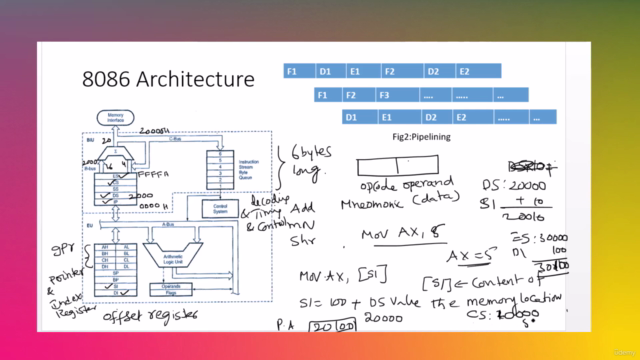 8086 Architecture
F1 D1 E1 F2 D2 E2
F1 F2 F3 .... .... ...
D1 E1 D2 E2 ..... ...
Fig2:Pipelining
Memory
Interface
BIU
20
20000H
C-Bus
B-bus
Σ
16
4
FFFFH
ES
CS
SS
DS
IP
2000
0000H
6
5
4
3
2
1
Instruction
Stream
Byte
Queue
6 bytes
long.
Control
System
decoding
& Timing
& Control
Add
Shr
EU
A-Bus
GPr
AH AL
BH BL
CH CL
DH DL
SP
BP
SI
DI
Arithmetic
Logic Unit
Operands
Flags
Pointer
&
Index
Register
offset register
opcode operand
Mnemonic (data)
Mov AX, 5
AX = 5
MOV AX, [SI]
[SI] ← Content of
the memory location
SI = 100 + DS value
20000
P.A
DS: 20000
SI + 10
20010
ES: 30000
DI 100
30100